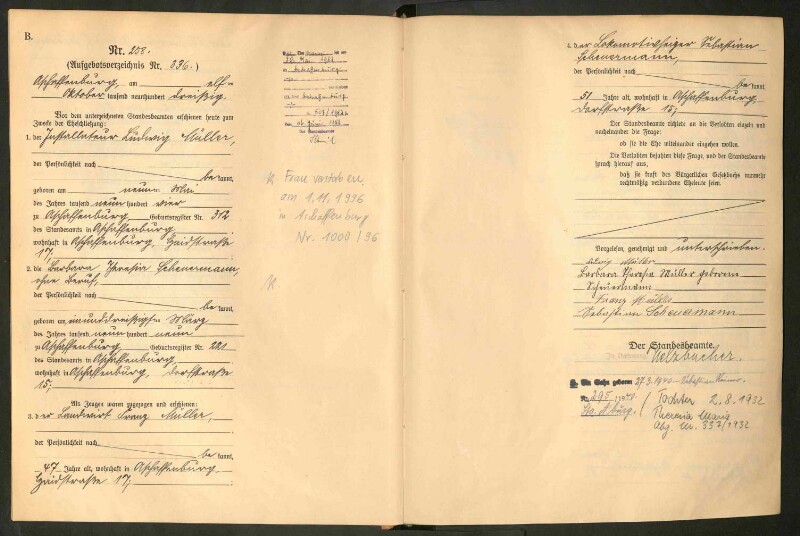 B.
Nr. 208.
(Aufgebotsverzeichnis Nr. 336.)
Aschaffenburg, am elf-
Oktober tausend neunhundert dreißig.
Vor dem unterzeichneten Standesbeamten erschienen heute zum
Zwecke der Eheschließung:
1. der Installateur Ludwig Müller,
der Persönlichkeit nach
be kannt,
geboren am neun Mai
des Jahres tausend neun hundert vier
zu Aschaffenburg, Geburtsregister Nr. 312
des Standesamts in Aschaffenburg,
wohnhaft in Aschaffenburg, Haidstraße
17;
2. die Barbara Theresia Scheuermann,
ohne Beruf,
der Persönlichkeit nach
be kannt,
geboren am einunddreißigsten März
des Jahres tausend neun hundert neun
zu Aschaffenburg, Geburtsregister Nr. 221
des Standesamts in Aschaffenburg,
wohnhaft in Aschaffenburg, Dorfstraße
15;
Als Zeugen waren zugezogen und erschienen:
3. der Landwirt Franz Müller,
der Persönlichkeit nach
be kannt,
47 Jahre alt, wohnhaft in Aschaffenburg,
Haidstraße 17;
Frau verstorben
am 1.11.1996
in Aschaffenburg
Nr. 1000/96
4. der Lokomotivheizer Sebastian
Scheuermann,
der Persönlichkeit nach
be kannt,
51 Jahre alt, wohnhaft in Aschaffenburg,
Dorfstraße 15;
Der Standesbeamte richtete an die Verlobten einzeln und
nacheinander die Frage:
ob sie die Ehe miteinander eingehen wollen.
Die Verlobten bejahten diese Frage, und der Standesbeamte
sprach hierauf aus,
daß sie kraft des Bürgerlichen Gesetzbuchs nunmehr
rechtmäßig verbundene Eheleute seien.
Vorgelesen, genehmigt und unterschrieben.
Ludwig Müller
Barbara Theresia Müller geborene
Scheuermann
Franz Müller
Sebastian Scheuermann
Der Standesbeamte.
In Vertretung: Welzbacher.
Ein Sohn geboren 27.3.1940
Nr. 295
Tochter 2.8.1932
Theresia Maria
Nr. 337/1932